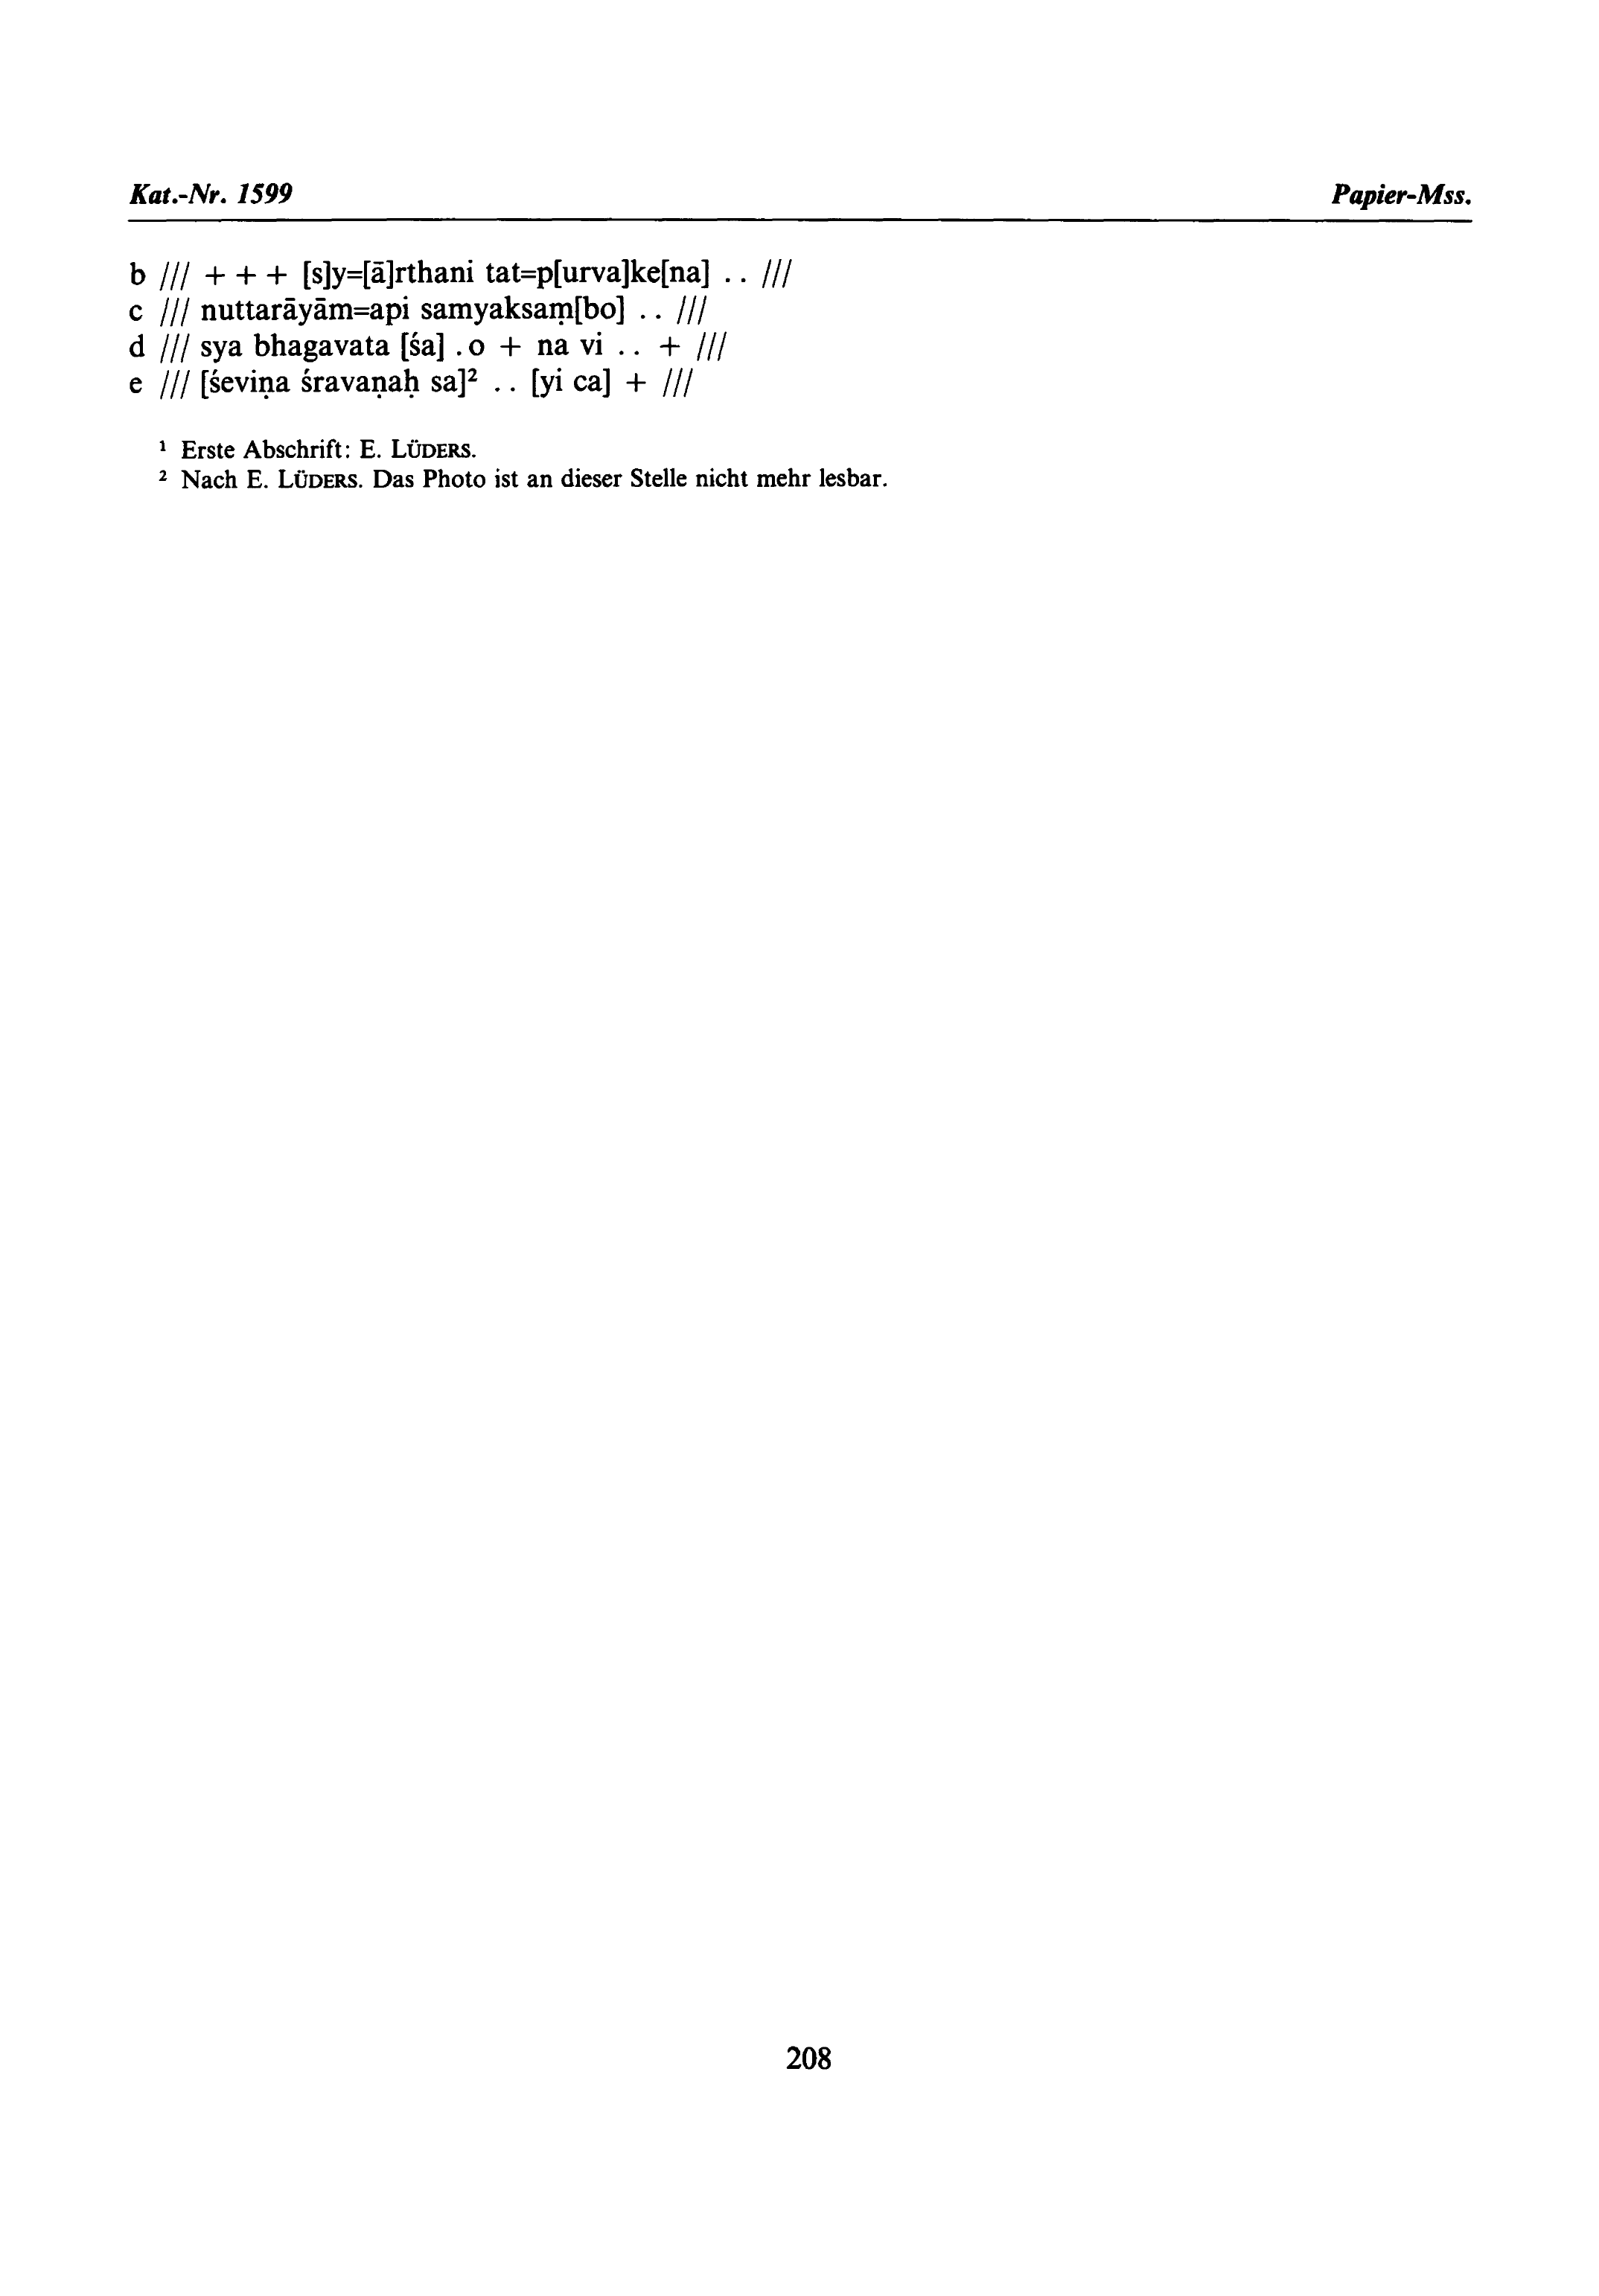 Kat.-Nr. 1599 Papier-Mss.
b /// + + + [s]y=[ā]rthani tat=p[urva]ke[na] . . ///
c /// nuttarāyām=api samyaksaṃ[bo] . . ///
d /// sya bhagavata [śa] . o + na vi . . + ///
e /// [śeviṇa śravaṇaḥ sa]² . . [yi ca] + ///
¹ Erste Abschrift: E. LÜDERS.
² Nach E. LÜDERS. Das Photo ist an dieser Stelle nicht mehr lesbar.
208